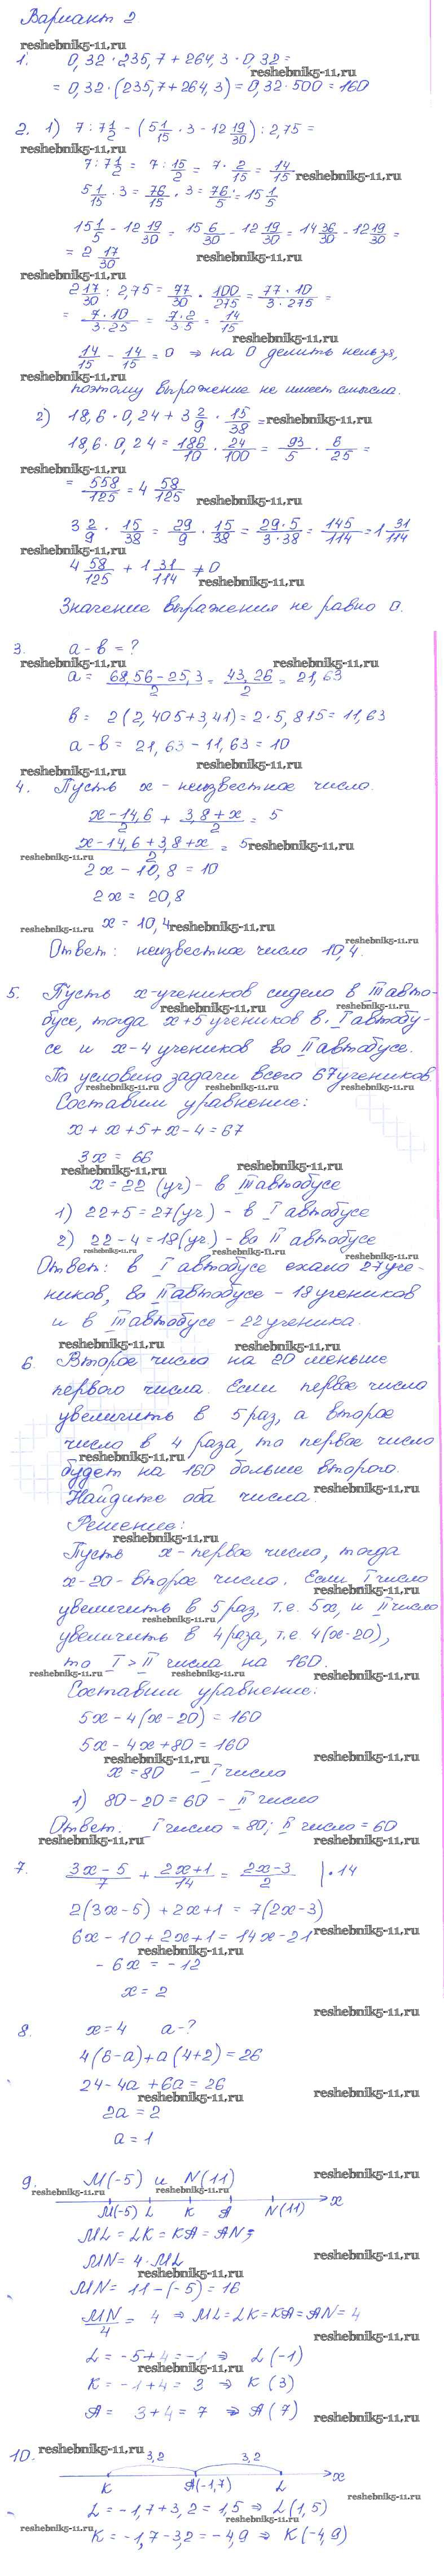 Вариант 2
reshebnik5-11.ru
1. 0,32 · 235,7 + 264,3 · 0,32 =
reshebnik5-11.ru
= 0,32 · (235,7 + 264,3) = 0,32 · 500 = 160
2. 1) 7 : 7 1/2 - (5 1/15 · 3 - 12 19/30) : 2,75 =
reshebnik5-11.ru
7 : 7 1/2 = 7 : 15/2 = 7 · 2/15 = 14/15
reshebnik5-11.ru
5 1/15 · 3 = 76/15 · 3 = 76/5 = 15 1/5
15 1/5 - 12 19/30 = 15 6/30 - 12 19/30 = 14 36/30 - 12 19/30 =
= 2 17/30
reshebnik5-11.ru
reshebnik5-11.ru
2 17/30 : 2,75 = 77/30 · 100/275 = 77 · 10/3 · 275 =
= 7 · 10/3 · 25 = 7 · 2/3 · 5 = 14/15
reshebnik5-11.ru
14/15 - 14/15 = 0 ⇒ на 0 делить нельзя,
reshebnik5-11.ru
поэтому выражение не имеет смысла.
2) 18,6 · 0,24 + 3 2/9 · 15/38 =
reshebnik5-11.ru
18,6 · 0,24 = 186/10 · 24/100 = 93/5 · 6/25 =
reshebnik5-11.ru
= 558/125 = 4 58/125
reshebnik5-11.ru
3 2/9 · 15/38 = 29/9 · 15/38 = 29 · 5/3 · 38 = 145/114 = 1 31/114
reshebnik5-11.ru
4 58/125 + 1 31/114 ≠ 0
reshebnik5-11.ru
Значение выражения не равно 0.
3. a - b = ?
reshebnik5-11.ru reshebnik5-11.ru
a = 68,56 - 25,3/2 = 43,26/2 = 21,63
b = 2(2,405 + 3,41) = 2 · 5,815 = 11,63
a - b = 21,63 - 11,63 = 10
reshebnik5-11.ru reshebnik5-11.ru
4. Пусть x - неизвестное число.
x - 14,6/2 + 3,8 + x/2 = 5
x - 14,6 + 3,8 + x/2 = 5
reshebnik5-11.ru
reshebnik5-11.ru
2x - 10,8 = 10
2x = 20,8
x = 10,4
reshebnik5-11.ru reshebnik5-11.ru
reshebnik5-11.ru
Ответ: неизвестное число 10,4.
5. Пусть x-учеников сидело в III авто-
reshebnik5-11.ru reshebnik5-11.ru
бусе, тогда x+5 учеников в I автобу-
се и x-4 учеников во II автобусе.
По условию задачи всего 67 учеников
reshebnik5-11.ru reshebnik5-11.ru reshebnik5-11.ru
Составим уравнение:
x + x + 5 + x - 4 = 67
3x = 66
reshebnik5-11.ru reshebnik5-11.ru
x = 22 (уч) - в III автобусе
1) 22 + 5 = 27 (уч.) - в I автобусе
2) 22 - 4 = 18 (уч.) - во II автобусе
reshebnik5-11.ru reshebnik5-11.ru reshebnik5-11.ru
Ответ: в I автобусе ехало 27 уче-
ников, во II автобусе - 18 учеников
и в III автобусе - 22 ученика.
reshebnik5-11.ru reshebnik5-11.ru
6. Второе число на 20 меньше
первого числа. Если первое число
увеличить в 5 раз, а второе
число в 4 раза, то первое число
reshebnik5-11.ru
будет на 160 больше второго.
Найдите оба числа.
reshebnik5-11.ru
Решение:
reshebnik5-11.ru
Пусть x - первое число, тогда
x-20 - второе число. Если I число
reshebnik5-11.ru
увеличить в 5 раз, т.е. 5x, и II число
reshebnik5-11.ru
увеличить в 4 раза, т.е 4(x-20),
то I > II числа на 160.
reshebnik5-11.ru reshebnik5-11.ru reshebnik5-11.ru
Составим уравнение:
5x - 4(x - 20) = 160
5x - 4x + 80 = 160
reshebnik5-11.ru reshebnik5-11.ru
x = 80 - I число
1) 80 - 20 = 60 - II число
Ответ. I число = 80; II число = 60
reshebnik5-11.ru reshebnik5-11.ru
7. 3x - 5/7 + 2x + 1/14 = 2x - 3/2 | · 14
2(3x - 5) + 2x + 1 = 7(2x - 3)
6x - 10 + 2x + 1 = 14x - 21
reshebnik5-11.ru
reshebnik5-11.ru
- 6x = - 12
x = 2
reshebnik5-11.ru
8. x = 4 a - ?
4(6 - a) + a(4 + 2) = 26
24 - 4a + 6a = 26
reshebnik5-11.ru reshebnik5-11.ru
2a = 2
a = 1
9. M(-5) и N(11)
reshebnik5-11.ru
reshebnik5-11.ru reshebnik5-11.ru
x
M(-5) L K A N(11)
ML = LK = KA = AN;
reshebnik5-11.ru
MN = 4 · ML
reshebnik5-11.ru
MN = 11 - (-5) = 16
reshebnik5-11.ru
MN/4 = 4 ⇒ ML = LK = KA = AN = 4
reshebnik5-11.ru
L = -5 + 4 = -1 ⇒ L(-1)
reshebnik5-11.ru
K = -1 + 4 = 3 ⇒ K(3)
A = 3 + 4 = 7 ⇒ A(7)
reshebnik5-11.ru
10. reshebnik5-11.ru
3,2 3,2
x
K A(-1,7) L
reshebnik5-11.ru
L = -1,7 + 3,2 = 1,5 ⇒ L(1,5)
reshebnik5-11.ru
reshebnik5-11.ru reshebnik5-11.ru
K = -1,7 - 3,2 = -4,9 ⇒ K(-4,9)